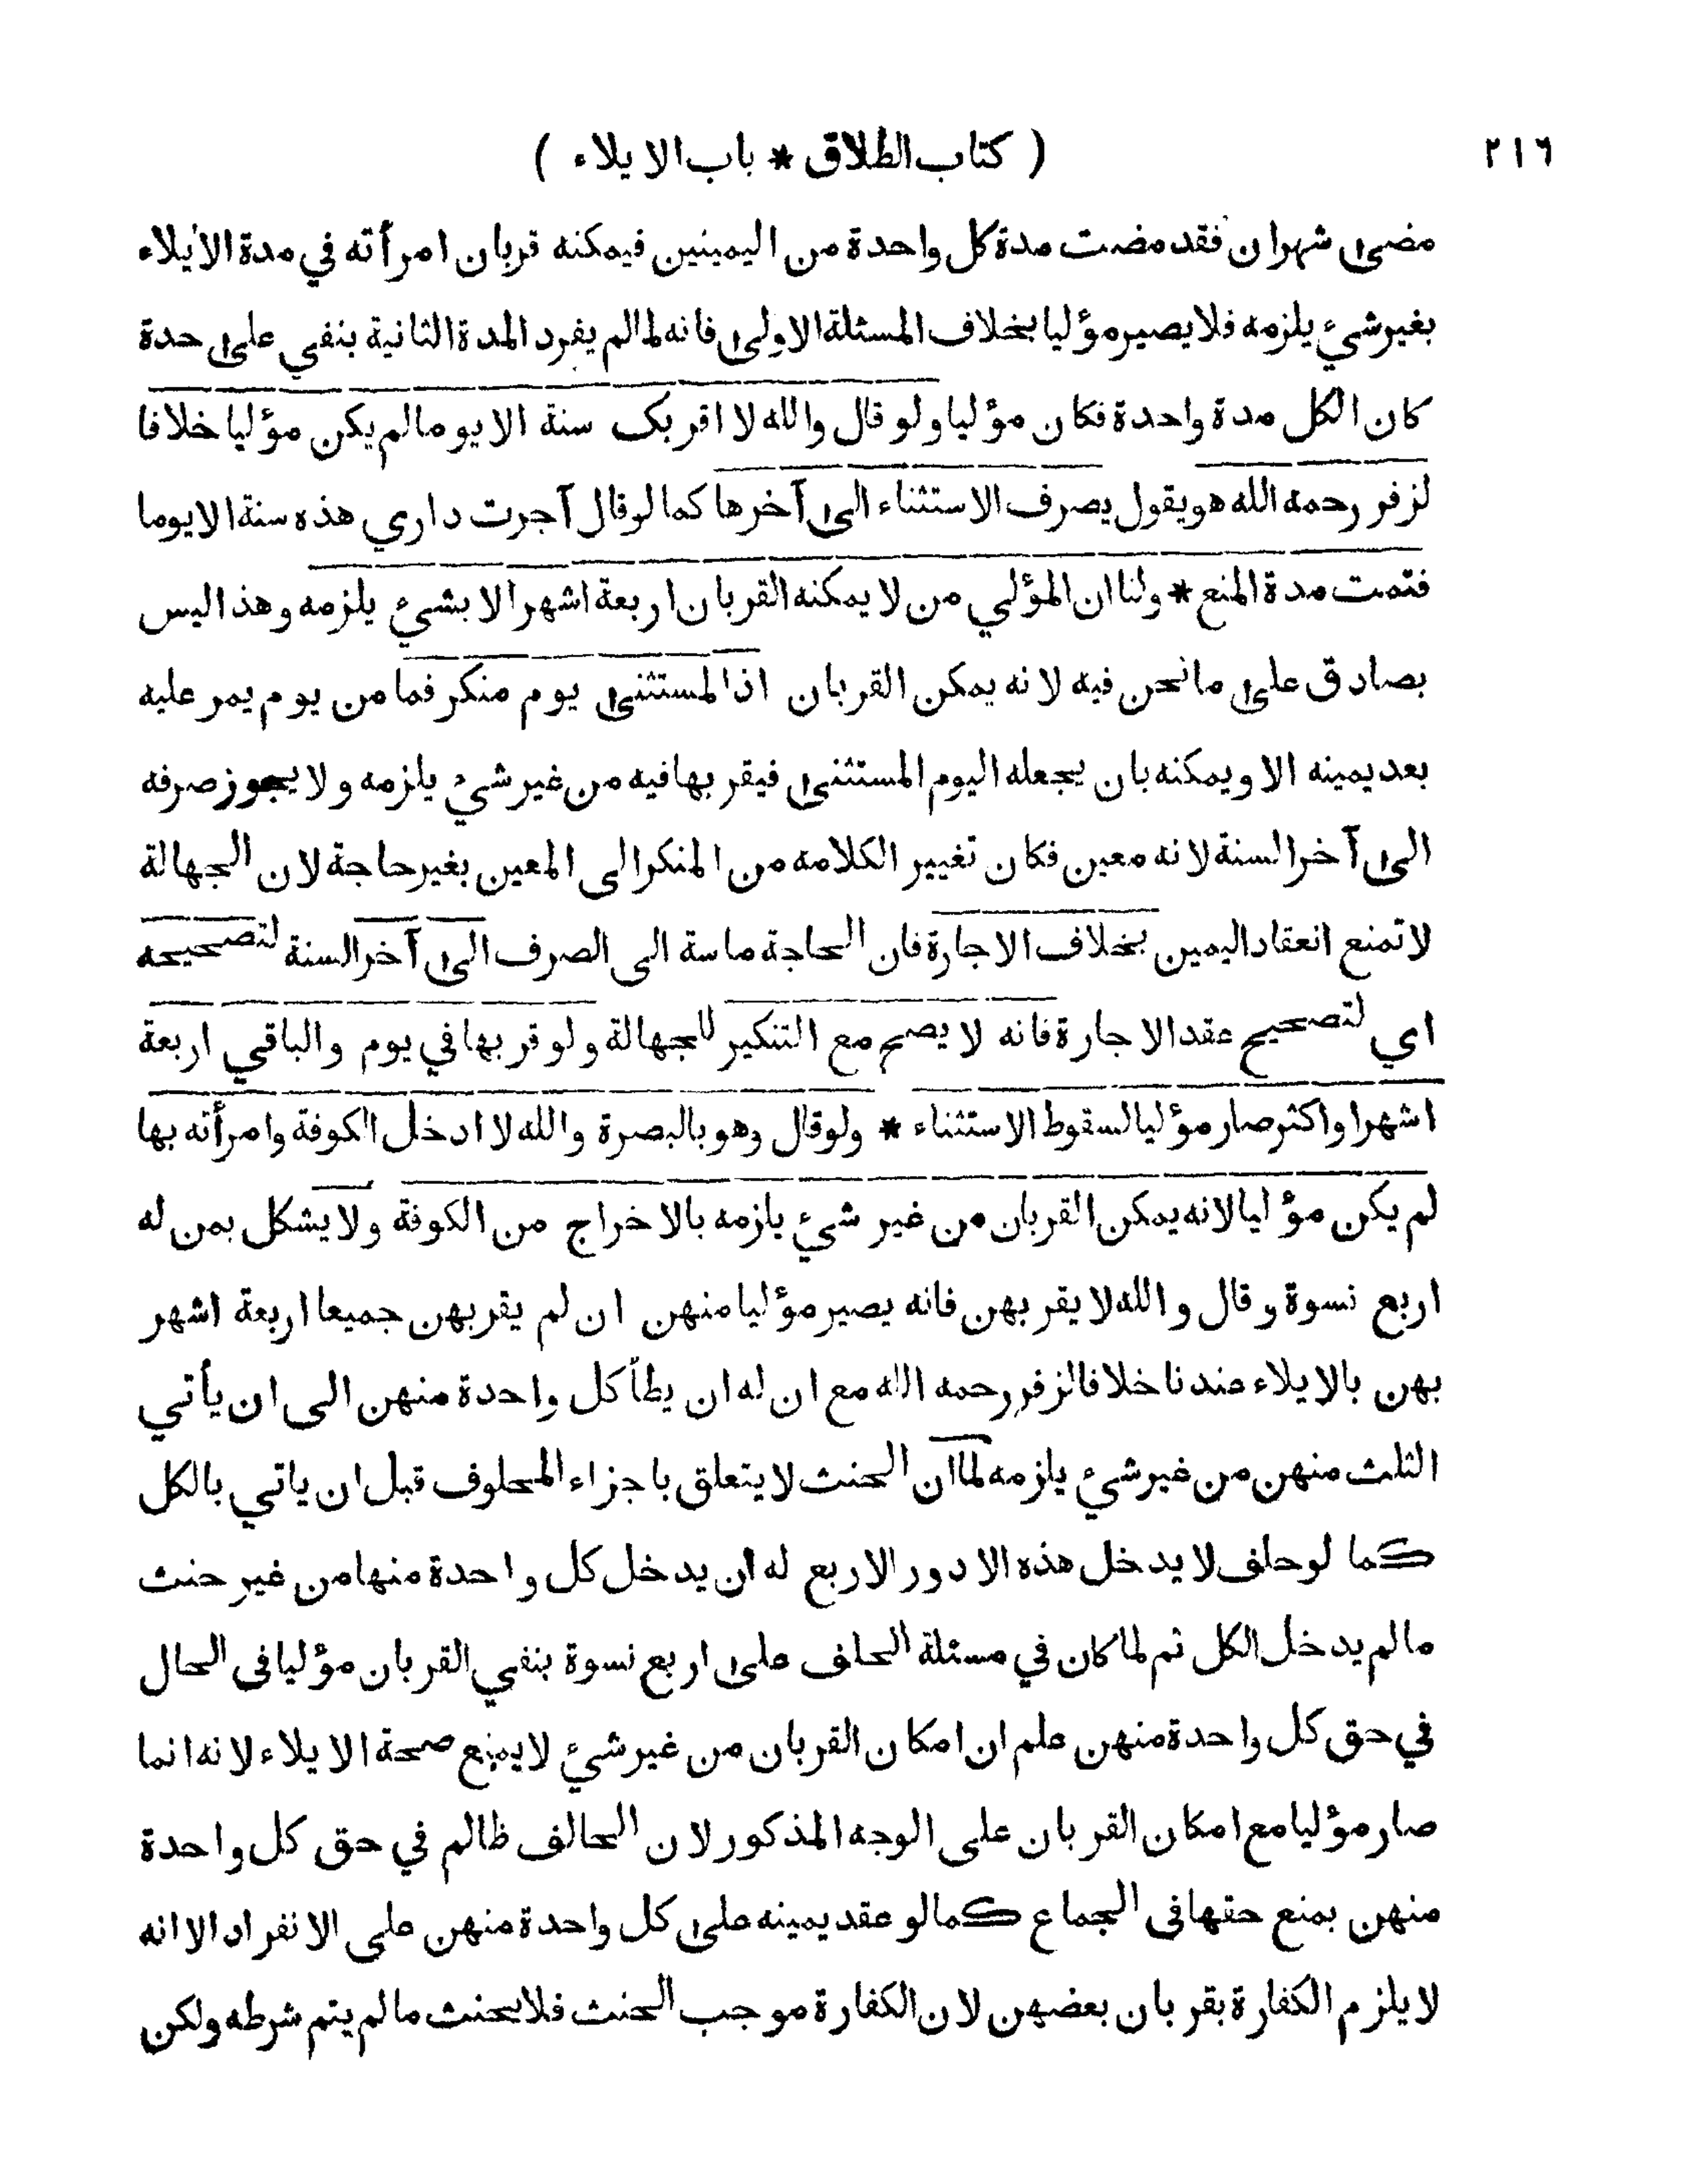 ٢١٦
( كتاب الطلاق * باب الايلاء )
مضى شهران فقد مضت مدة كل واحدة من اليمينين فيمكنه قربان امرأته في مدة الايلاء
بغير شيء يلزمه فلا يصير مؤليا بخلاف المسئلة الاولى فانه لما لم يفرد المدة الثانية بنفي على حدة
كان الكل مدة واحدة فكان مؤليا ولو قال والله لا اقربك سنة الا يوما لم يكن مؤليا خلافا
لزفر رحمه الله هو يقول يصرف الاستثناء الى آخرها كما لو قال آجرت داري هذه سنة الا يوما
فتمت مدة المنع * ولنا ان المؤلي من لا يمكنه القربان اربعة اشهر الا بشيء يلزمه وهذا ليس
بصادق على ما نحن فيه لانه يمكن القربان اذ المستثنى يوم منكر فما من يوم يمر عليه
بعد يمينه الا ويمكنه بان يجعله اليوم المستثنى فيقربها فيه من غير شيء يلزمه ولا يجوز صرفه
الى آخر السنة لانه معين فكان تغيير الكلامه من المنكر الى المعين بغير حاجة لان الجهالة
لا تمنع انعقاد اليمين بخلاف الاجارة فان الحاجة ماسة الى الصرف الى آخر السنة لتصحيحه
اي لتصحيح عقد الاجارة فانه لا يصح مع التنكير للجهالة ولو قربها في يوم والباقي اربعة
اشهر او اكثر صار مؤليا لسقوط الاستثناء * ولو قال وهو بالبصرة والله لا ادخل الكوفة وامرأته بها
لم يكن مؤليا لانه يمكن القربان من غير شيء يلزمه بالاخراج من الكوفة ولا يشكل بمن له
اربع نسوة وقال والله لا يقربهن فانه يصير مؤليا منهن ان لم يقربهن جميعا اربعة اشهر
بهن بالايلاء عندنا خلافا لزفر رحمه الله مع ان له ان يطأ كل واحدة منهن الى ان يأتي
الثلث منهن من غير شيء يلزمه لما ان الحنث لا يتعلق باجزاء المحلوف قبل ان ياتي بالكل
كما لو حلف لا يدخل هذه الادور الاربع له ان يدخل كل واحدة منها من غير حنث
ما لم يدخل الكل ثم لما كان في مسئلة الحلف على اربع نسوة بنفي القربان مؤليا في الحال
في حق كل واحدة منهن علم ان امكان القربان من غير شيء لا يمنع صحة الايلاء لانه انما
صار مؤليا مع امكان القربان على الوجه المذكور لان الحالف ظالم في حق كل واحدة
منهن بمنع حقها في الجماع كما لو عقد يمينه على كل واحدة منهن على الانفراد الا انه
لا يلزم الكفارة بقربان بعضهن لان الكفارة موجب الحنث فلا يحنث ما لم يتم شرطه ولكن